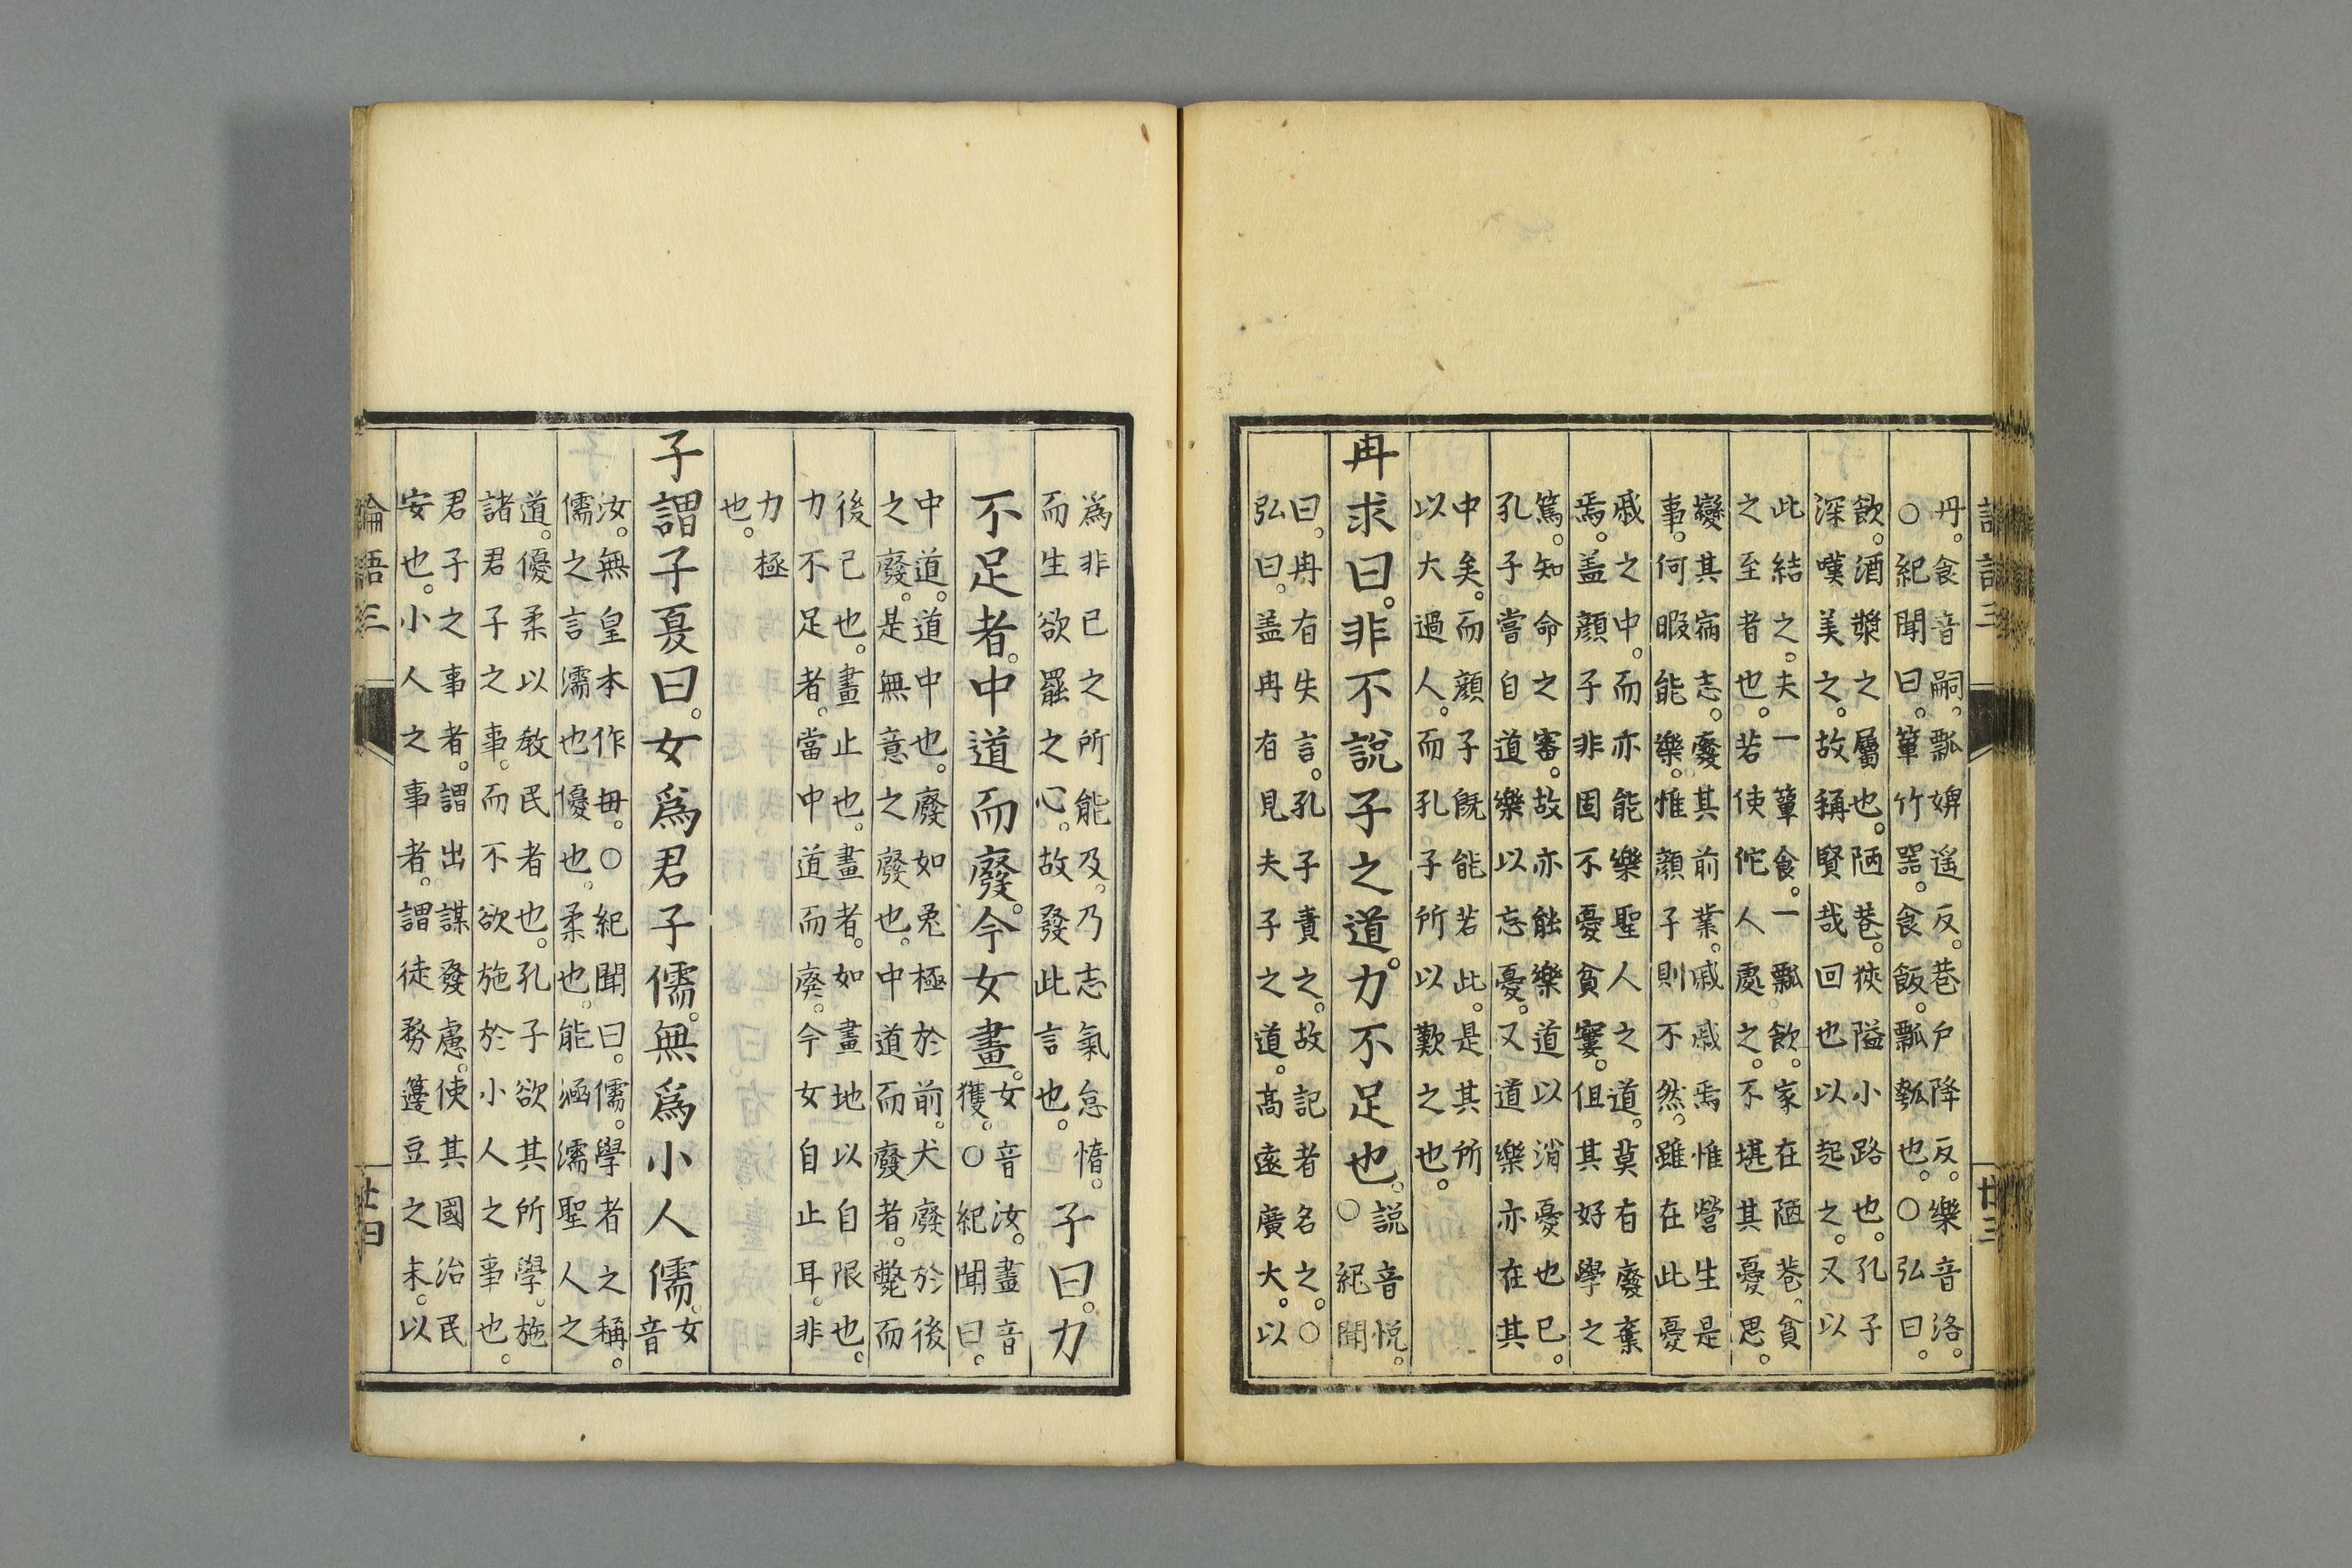 丹。食音嗣。瓢婢遙反。巷戶降反。樂音洛。
○紀聞曰。簞竹器。食飯。瓢瓠也。○弘曰。
飲。酒漿之屬也。陋巷。狹隘小路也。孔子
深嘆美之。故稱賢哉回也以起之。又以
此結之。夫一簞食。一瓢飲。家在陋巷。貧
之至者也。若使佗人處之。不堪其憂思。
變其病志。廢其前業。戚戚焉惟營生是
事。何暇能樂。惟顏子則不然。雖在此憂
戚之中。而亦能樂聖人之道。莫有廢棄
焉。盖顏子非固不憂貧窶。但其好學之
篤。知命之審。故亦能樂道以消憂也已。
孔子嘗自道樂以忘憂。又道樂亦在其
中矣。而顏子既能若此。是其所
以大過人。而孔子所以歎之也。
冉求曰。非不說子之道。力不足也。
說音悅。
○紀聞
曰。冉有失言。孔子責之。故記者名之。○
弘曰。盖冉有見夫子之道。高遠廣大。以
爲非已之所能及。乃志氣怠惰。
而生欲罷之心。故發此言也。
子曰。力
不足者。中道而廢。今女畫。
女音汝。畫音
獲。○紀聞曰。
中道。道中也。廢如兎極於前。犬廢於後
之廢。是無意之廢也。中道而廢者。斃而
後已也。畫止也。畫者。如畫地以自限也。
力不足者。當中道而廢。今女自止耳。非
力極
也。
子謂子夏曰。女爲君子儒。無爲小人儒。
女
音
汝。無皇本作毋。○紀聞曰。儒。學者之稱。
儒之言濡也優也。柔也。能涵濡聖人之
道。優柔以敎民者也。孔子欲其所學。施
諸君子之事。而不欲施於小人之事也。
君子之事者。謂出謀發慮。使其國治民
安也。小人之事者。謂徒務籩豆之末。以
論語三